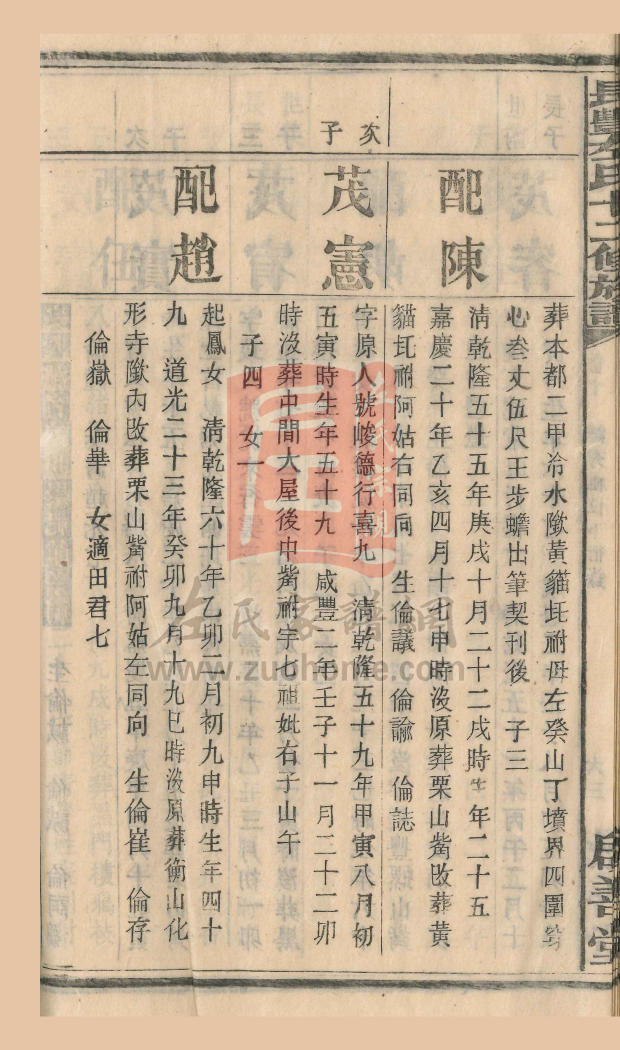 長豐左氏十二修族譜
啟善堂
葬本都二甲冷水隞黃貓㘭祔毋左癸山丁墳界四圍
心叁丈伍尺王步蟾出筆契刊後　子三
配陳
清乾隆五十五年庚戌十月二十二戌時生年二十五
嘉慶二十年乙亥四月十七申時沒原葬栗山嘴改葬黃
貓㘭祔阿姑右同向　生倫議　倫諭　倫誌
次子
茂憲
字原人號峻德行喜九　清乾隆五十九年甲寅八月初
五寅時生年五十九　咸豐二年壬子十一月二十二卯
時沒葬中間大屋後中嘴祔宇七祖妣右子山午
子四　女一
配趙
起鳳女　清乾隆六十年乙卯二月初九申時生年四十
九　道光二十三年癸卯九月十九巳時沒原葬衡山化
形寺隞內改葬栗山嘴祔阿姑左同向　生倫崔　倫存
倫嶽　倫華　女適田君七
左氏家譜網
www.zuohome.com